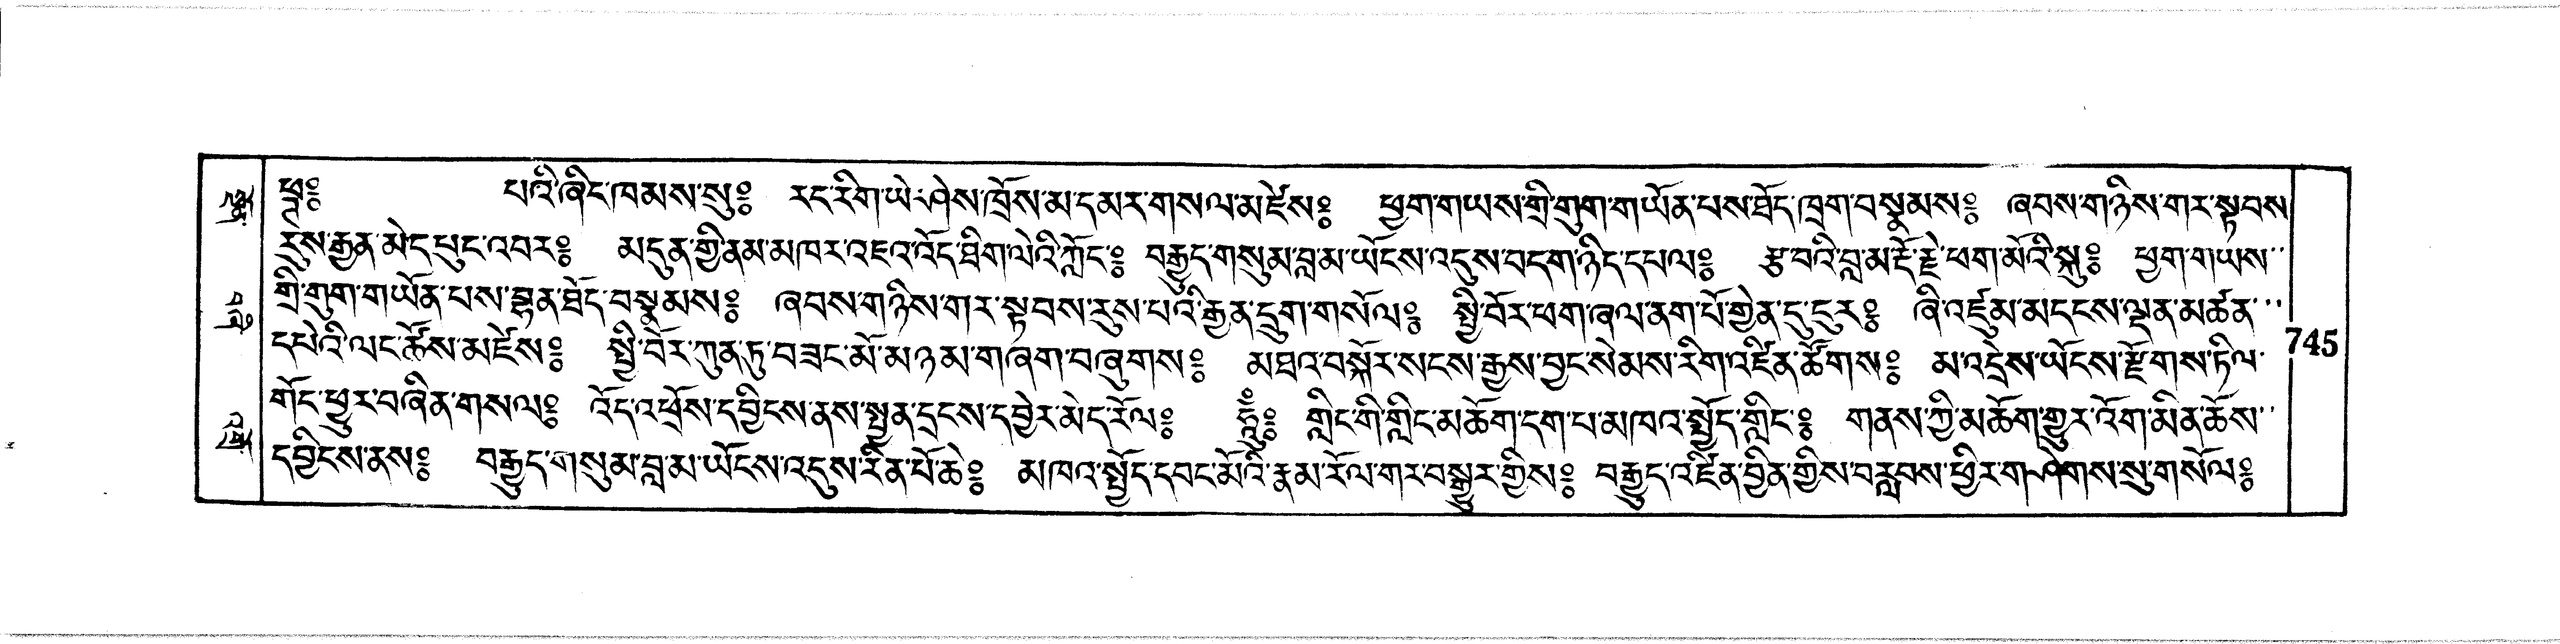 ཕཊ༔ པའི་ཞིང་ཁམས་སུ༔ རང་རིག་ཡེ་ཤེས་ཁྲོས་མ་དམར་གསལ་མཛེས༔ ཕྱག་གཡས་གྲི་གུག་གཡོན་པས་ཐོད་ཁྲག་བསྣམས༔ ཞབས་གཉིས་གར་སྟབས
རུས་རྒྱན་མེད་པུང་འབར༔ མདུན་གྱི་ནམ་མཁར་འཇའ་འོད་ཐིག་ལེའི་ཀློང་༔ བརྒྱུད་གསུམ་བླ་མ་ཡོངས་འདུས་བདག་ཉིད་དཔལ༔ རྩ་བའི་བླ་མ་རྡོ་རྗེ་ཕག་མོའི་སྐུ༔ ཕྱག་གཡས
གྲི་གུག་གཡོན་པས་སྨན་ཐོད་བསྣམས༔ ཞབས་གཉིས་གར་སྟབས་རུས་པའི་རྒྱན་དྲུག་གསོལ༔ སྤྱི་བོར་ཕག་ཞལ་ནག་པོ་གྱེན་དུ་ངུར༔ ཞི་འཛུམ་མདངས་ལྡན་མཚན
དཔེའི་ལང་ཚོས་མཛེས༔ སྤྱི་བོར་ཀུན་ཏུ་བཟང་མོ་མཉམ་གཞག་བཞུགས༔ མཐའ་བསྐོར་སངས་རྒྱས་བྱང་སེམས་རིག་འཛིན་ཚོགས༔ མ་འདྲེས་ཡོངས་རྫོགས་ཏིལ་
གོང་ཕྱུར་བཞིན་གསལ༔ འོད་འཕྲོས་དབྱིངས་ནས་སྤྱན་དྲངས་དབྱེར་མེད་རོལ༔ ཧཱུྃ༔ གླིང་གི་གླིང་མཆོག་དག་པ་མཁའ་སྤྱོད་གླིང་༔ གནས་ཀྱི་མཆོག་གྱུར་འོག་མིན་ཆོས
དབྱིངས་ནས༔ བརྒྱུད་གསུམ་བླ་མ་ཡོངས་འདུས་རིན་པོ་ཆེ༔ མཁའ་སྤྱོད་དབང་མོའི་རྣམ་རོལ་གར་བསྒྱུར་གྱིས༔ བརྒྱུད་འཛིན་བྱིན་གྱིས་བརླབས་ཕྱིར་གཤེགས་སུ་གསོལ༔
745